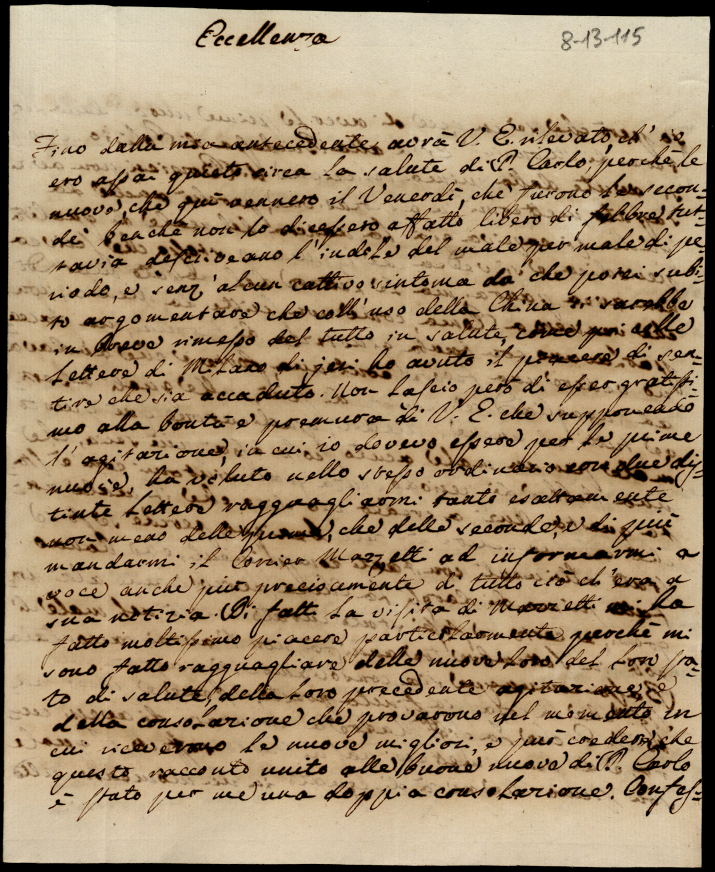 Eccellenza
8-13-115
Fino dalla mia antecedente avrà V. E. rilevato ch' io
ero assai quieto circa la salute di P. Carlo, perchè le
nuove che quì vennero il Venerdì, che furono le secon-
de benchè non lo dicessero affatto libero di febbre tut-
tavia descriveano l'indole del male per male di pe-
riodo, e senz' alcun cattivo sintoma da che potei subi-
to argomentare che coll' uso della China si sarebbe
in breve rimesso del tutto in salute, come poi colle
Lettere di Milano di jeri ho avuto il piacere di sen-
tire che sia accaduto. Non lascio però di esser gratissi-
mo alla bontà e premura di V. E. che supponendo
l'agitazione, in cui io dovevo essere per le prime
nuove, ha voluto nello stesso ordinario con due dis-
tinte Lettere ragguagliarmi tanto esattamente
non meno delle prime, che delle seconde, e di più
mandarmi il Corrier Mazzetti ad informarmi a
voce anche più precisamente di tutto ciò ch'era a
sua notizia. Di fatti la visita di Mazzetti mi ha
fatto moltissimo piacere particolarmente perchè mi
sono fatto ragguagliare delle nuove loro, del loro sta-
to di salute, della loro precedente agitazione, e
della consolazione che provarono nel momento in
cui riceverono le nuove migliori, e può credere che
questo racconto unito alle buone nuove di P. Carlo
è stato per me una doppia consolazione. Confes-